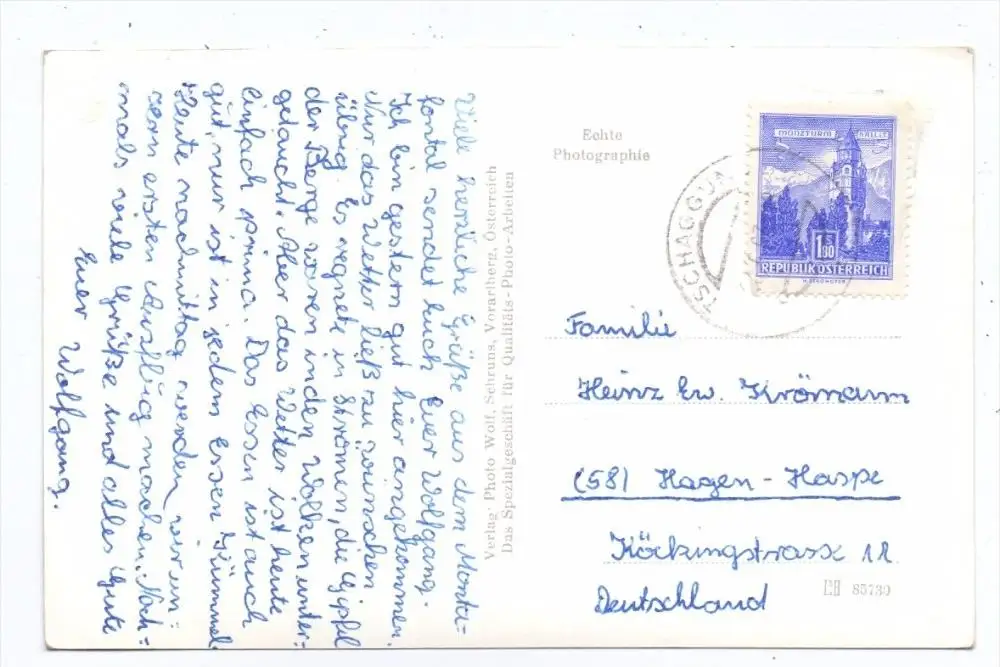 Viele herzliche Grüße aus dem Monta=
fontal sendet Euch Euer Wolfgang.
Ich bin gestern gut hier angekommen.
Nur das Wetter ließ zu wünschen
übrig. Es regnete in Strömen, die Gipfel
der Berge waren in den Wolken unter=
getaucht. Aber das Wetter ist heute
einfach prima. Das Essen ist auch
gut, nur ist in jedem Essen Kümmel.
Heute nachmittag werden wir un=
sern ersten Ausflug machen. Noch=
mals viele Grüße und alles Gute
Euer Wolfgang.
Verlag: Photo Wolf, Schruns, Vorarlberg, Österreich
Das Spezialgeschäft für Qualitäts-Photo-Arbeiten
Echte
Photographie
TSCHAGGUN
MÜNZTURM HALL I.T.
1.50
REPUBLIK ÖSTERREICH
Familie
Heinz Ew. Krömann
(58) Hagen-Haspe
Köckingstrasse 11
Deutschland
85739